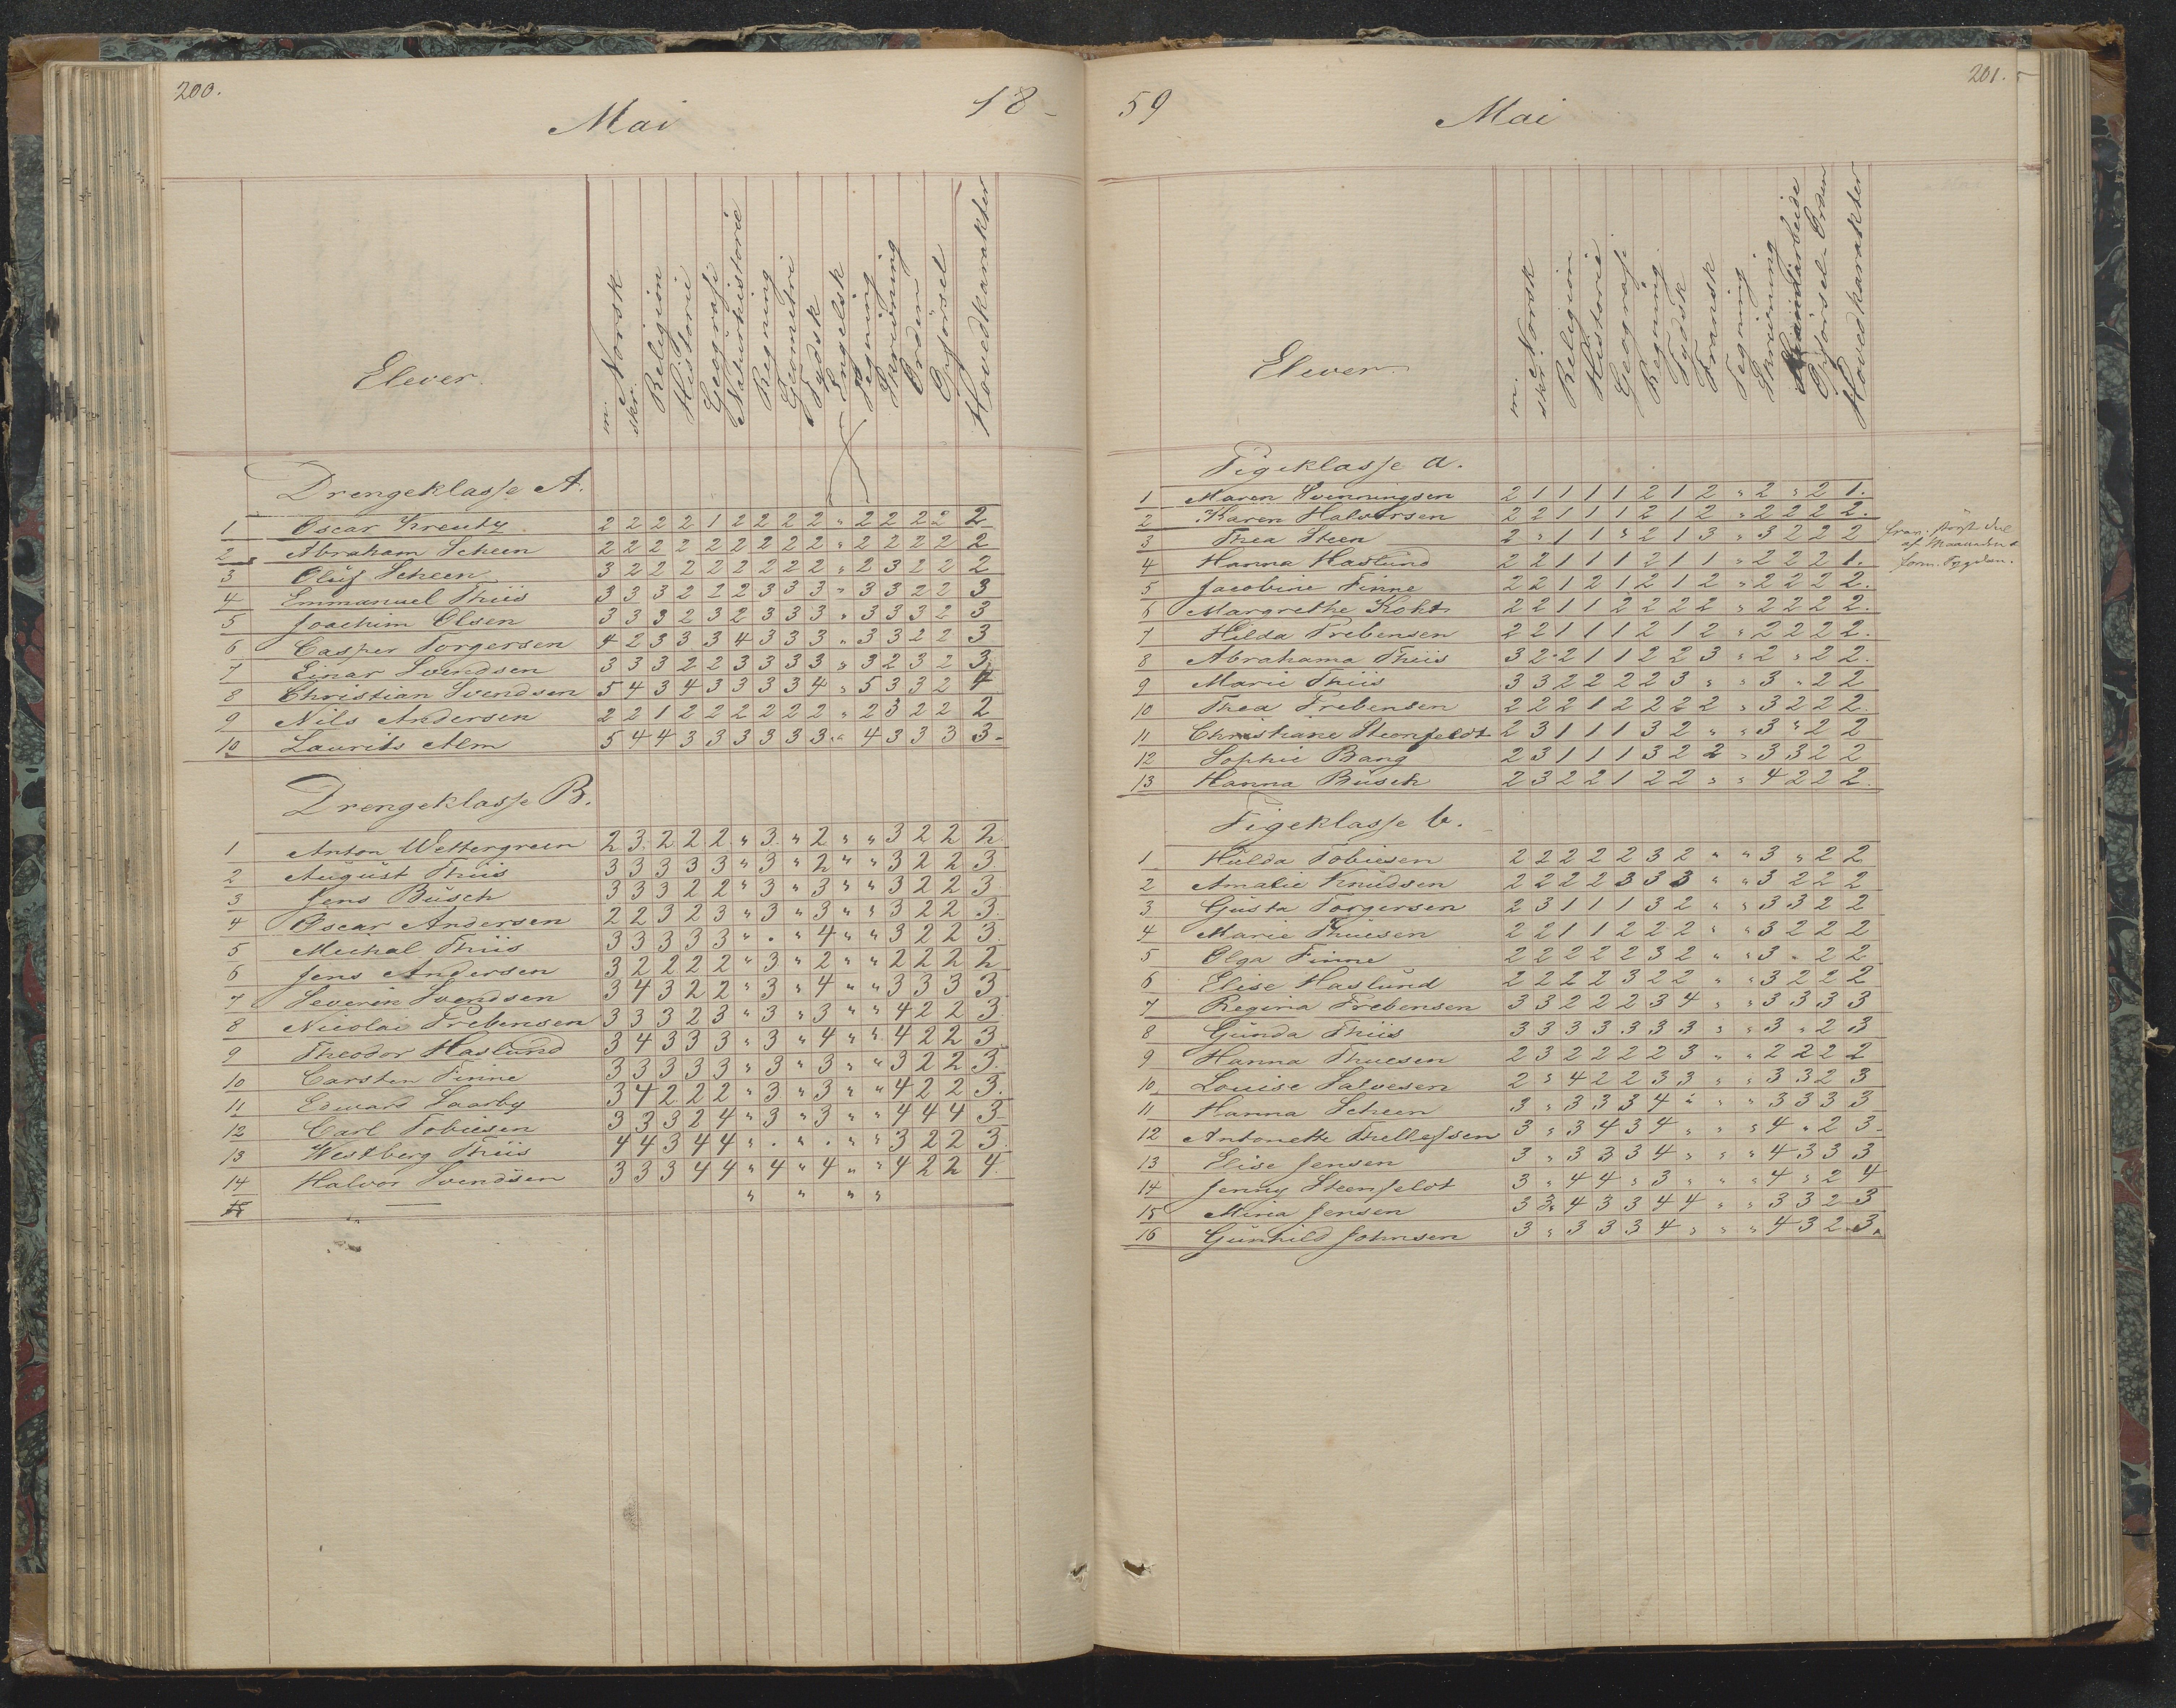 200.
Mai
18-
Elever.
m. Norsk
skr.
Religion
Historie
Geografi
Naturhistorie
Regning
Geometri
Tydsk
Engelsk
Tegning
Skrivning
Orden
Opførsel
Hovedkarakter
Drengeklasse A.
1 Oscar Kreutz 2 2 2 2 1 2 2 2 2 " 2 2 2 2 2
2 Abraham Scheen 2 2 2 2 2 2 2 2 2 " 2 2 2 2 2
3 Oluf Scheen 3 2 2 2 2 2 2 2 2 " 2 3 2 2 2
4 Emmanuel Thiis 3 3 3 2 2 2 3 3 3 " 3 3 2 2 3
5 Joachim Olsen 3 3 3 2 3 2 3 3 3 " 3 3 3 2 3
6 Casper Torgersen 4 2 3 3 3 4 3 3 3 " 3 3 2 2 3
7 Einar Svendsen 3 3 3 2 2 3 3 3 3 " 3 2 3 2 3
8 Christian Svendsen 5 4 3 4 3 3 3 3 4 " 5 3 3 2 4
9 Nils Andersen 2 2 1 2 2 2 2 2 2 " 2 3 2 2 2
10 Laurits Alm 5 4 4 3 3 3 3 3 3 " 4 3 3 3 3-
Drengeklasse B.
1 Anton Wettergreen 2 3 2 2 2 " 3 " 2 " " 3 2 2 2
2 August Thiis 3 3 3 3 3 " 3 " 2 " " 3 2 2 3
3 Jens Büsch 3 3 3 2 2 " 3 " 3 " " 3 2 2 3
4 Oscar Andersen 2 2 3 2 3 " 3 " 3 " " 3 2 2 3.
5 Michal Thiis 3 3 3 3 3 " . " 4 " " 3 2 2 3
6 Jens Andersen 3 2 2 2 2 " 3 " 2 " " 2 2 2 2
7 Severin Svendsen 3 4 3 2 2 " 3 " 4 " " 3 3 3 3
8 Nicolai Trebensen 3 3 3 2 3 " 3 " 3 " " 4 2 2 3
9 Theodor Haslund 3 4 3 3 3 " 3 " 4 " " 4 2 2 3
10 Carsten Finne 3 3 3 3 3 " 3 " 3 " " 3 2 2 3.
11 Edward Saarby 3 4 2 2 2 " 3 " 3 " " 4 2 2 3.
12 Carl Tobiesen 3 3 3 2 4 " 3 " 3 " " 4 4 4 3-
13 Westberg Thiis 4 4 3 4 4 " . " . " " 3 2 2 3.
14 Halvor Svendsen 3 3 3 4 4 " 4 " 4 " " 4 2 2 4.
15 — " " " "
59
Mai
201.
Elever
m. Norsk
skr.
Religion
Historie
Geografi
Regning
Tydsk
Fransk
Tegning
Skrivning
Haandarbeide
Opførsel-Orden
Hovedkarakter
Pigeklasse a.
1 Maren Svenningsen 2 1 1 1 1 2 1 2 " 2 " 2 1.
2 Karen Halvorsen 2 2 1 1 1 2 1 2 " 2 2 2 2.
3 Thea Steen 2 " 1 1 " 2 1 3 " 3 2 2 2
4 Hanna Haslund 2 2 1 1 1 2 1 1 " 2 2 2 1.
5 Jacobine Finne 2 2 1 2 1 2 1 2 " 2 2 2 2.
6 Margrethe Koht 2 2 1 1 2 2 2 2 " 2 2 2 2.
7 Hilda Trebensen 2 2 1 1 1 2 1 2 " 2 2 2 2.
8 Abrahama Thiis 3 2 2 1 1 2 2 3 " 2 " 2 2.
9 Marie Thiis 3 3 2 2 2 2 3 " " 3 " 2 2
10 Thea Trebensen 2 2 2 1 2 2 2 2 " 3 2 2 2.
11 Christiane Steenfeldt 2 3 1 1 1 3 2 " " 3 " 2 2
12 Sophie Bang 2 3 1 1 1 3 2 2 " 3 3 2 2
13 Hanna Büsch 2 3 2 2 1 2 2 " " 4 2 2 2.
af Maaneden
Pigeklasse b.
1 Hulda Tobiesen 2 2 2 2 2 3 2 " " 3 " 2 2
2 Amalie Knudsen 2 2 2 2 3 3 3 " " 3 2 2 2
3 Gusta Torgersen 2 3 1 1 1 3 2 " " 3 3 2 2
4 Marie Thuesen 2 2 1 1 2 2 2 " " 3 2 2 2
5 Olga Finne 2 2 2 2 2 3 2 " " 3 " 2 2
6 Elise Haslund 2 2 2 2 3 2 2 " " 3 2 2 2
7 Regina Trebensen 3 3 2 2 2 3 4 " " 3 3 3 3
8 Gunda Thiis 3 3 3 3 3 3 3 " " 3 " 2 3
9 Hanna Thuesen 2 3 2 2 2 2 3 " " 2 2 2 2
10 Louise Salvesen 2 " 4 2 2 3 3 " " 3 3 2 3
11 Hanna Scheen 3 " 3 3 3 4 " " " 3 3 3 3
12 Antonette Thellefsen 3 " 3 4 3 4 " " " 4 " 2 3-
13 Elise Jensen 3 " 3 3 3 4 " " " 4 3 3 3
14 Jenny Steenfeldt 3 " 4 4 " 3 " " " 4 " 2 4
15 Mina Jensen 3 3 4 3 3 4 4 " " 3 3 2 3
16 Gunhild Johnsen 3 " 3 3 3 4 " " " 4 3 2 3.